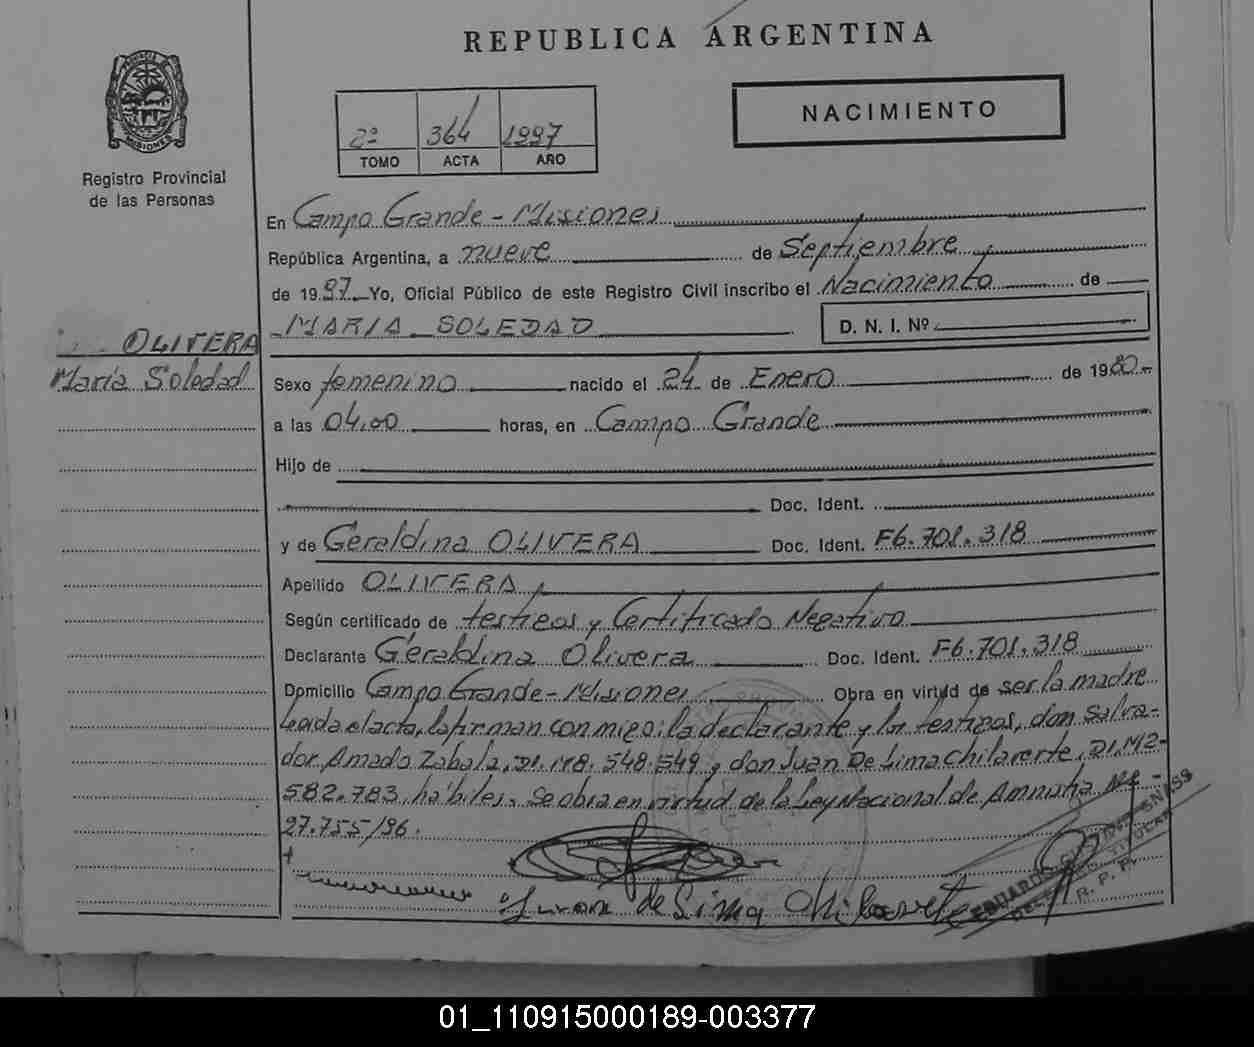 REPUBLICA ARGENTINA
PROVINCIA DE MISIONES
Registro Provincial
de las Personas
2º 364 1997
TOMO ACTA AÑO
NACIMIENTO
En Campo Grande - Misiones
República Argentina, a nueve de Septiembre
de 1997 Yo, Oficial Público de este Registro Civil inscribo el Nacimiento de
MARIA SOLEDAD D. N. I. Nº
OLIVERA
María Soledad
Sexo femenino nacido el 24 de Enero de 1980
a las 04,00 horas, en Campo Grande
Hijo de
Doc. Ident.
y de Geraldina OLIVERA Doc. Ident. F6.701.318
Apellido OLIVERA
Según certificado de testigos y Certificado Negativo
Declarante Geraldina Olivera Doc. Ident. F6.701.318
Domicilio Campo Grande - Misiones Obra en virtud de ser la madre
Leida el acta, la firman conmigo: la declarante y los testigos, don Salva-
dor Amado Zabala, DI.M8.548.549 y don Juan De Lima Chilaverte, DI.M2-
582.783, hábiles. Se obra en virtud de la Ley Nacional de Amnistia Nº -
27.755/96.
Juan de Lima
EDUARDO
R. P. P.
01_110915000189-003377